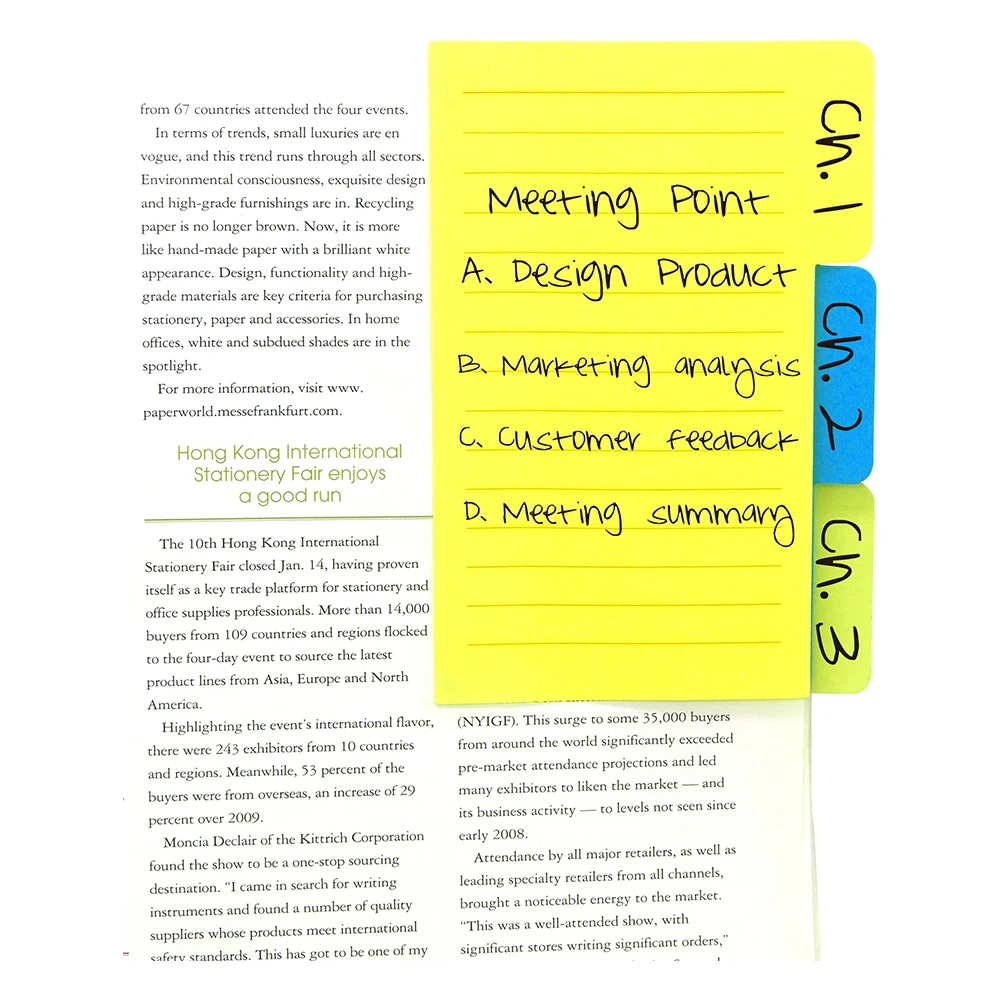 from 67 countries attended the four events.
In terms of trends, small luxuries are en
vogue, and this trend runs through all sectors.
Environmental consciousness, exquisite design
and high-grade furnishings are in. Recycling
paper is no longer brown. Now, it is more
like hand-made paper with a brilliant white
appearance. Design, functionality and high-
grade materials are key criteria for purchasing
stationery, paper and accessories. In home
offices, white and subdued shades are in the
spotlight.
For more information, visit www.
paperworld.messefrankfurt.com.
Hong Kong International
Stationery Fair enjoys
a good run
The 10th Hong Kong International
Stationery Fair closed Jan. 14, having proven
itself as a key trade platform for stationery and
office supplies professionals. More than 14,000
buyers from 109 countries and regions flocked
to the four-day event to source the latest
product lines from Asia, Europe and North
America.
Highlighting the event's international flavor,
there were 243 exhibitors from 10 countries
and regions. Meanwhile, 53 percent of the
buyers were from overseas, an increase of 29
percent over 2009.
Moncia Declair of the Kittrich Corporation
found the show to be a one-stop sourcing
destination. "I came in search for writing
instruments and found a number of quality
suppliers whose products meet international
safety standards. This has got to be one of my
Meeting Point
A. Design Product
B. Marketing analysis
C. Customer feedback
D. Meeting summary
Ch. 1
Ch. 2
Ch. 3
(NYIGF). This surge to some 35,000 buyers
from around the world significantly exceeded
pre-market attendance projections and led
many exhibitors to liken the market — and
its business activity — to levels not seen since
early 2008.
Attendance by all major retailers, as well as
leading specialty retailers from all channels,
brought a noticeable energy to the market.
"This was a well-attended show, with
significant stores writing significant orders,"